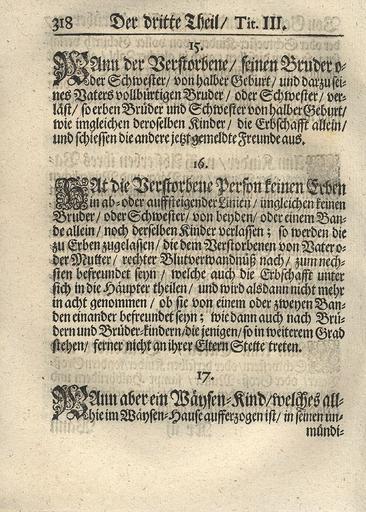 318 Der dritte Theil/ Tit. III.
15.
WAnn der Verstorbene/ seinen Bruder o-
der Schwester/ von halber Geburt/ und darzu sei-
nes Vaters vollbürtigen Bruder/ oder Schwester/ ver-
läst/ so erben Brüder und Schwester von halber Geburt/
wie ingleichen deroselben Kinder/ die Erbschafft allein/
und schiessen die andere jetzt gemeldte Freunde aus.
16.
HAt die Verstorbene Person keinen Erben
in ab- oder auffsteigender Linien/ ingleichen keinen
Bruder/ oder Schwester/ von beyden/ oder einem Ban-
de allein/ noch derselben Kinder verlassen; so werden die
zu Erben zugelassen/ die dem Verstorbenen von Vater o-
der Mutter/ rechter Blutverwandnüß nach/ zum nech-
sten befreundet seyn/ welche auch die Erbschafft unter
sich in die Häupter theilen/ und wird alsdann nicht mehr
in acht genommen/ ob sie von einem oder zweyen Ban-
den einander befreundet seyn; wie dann auch nach Brü-
dern und Brüder-kindern/ die jenigen/ so in weiterem Grad
stehen/ ferner nicht an ihrer Eltern Stette treten.
17.
WAnn aber ein Wäysen-Kind/ welches all-
hie im Wäysen-Hause aufferzogen ist/ in seinen un-
mündi-